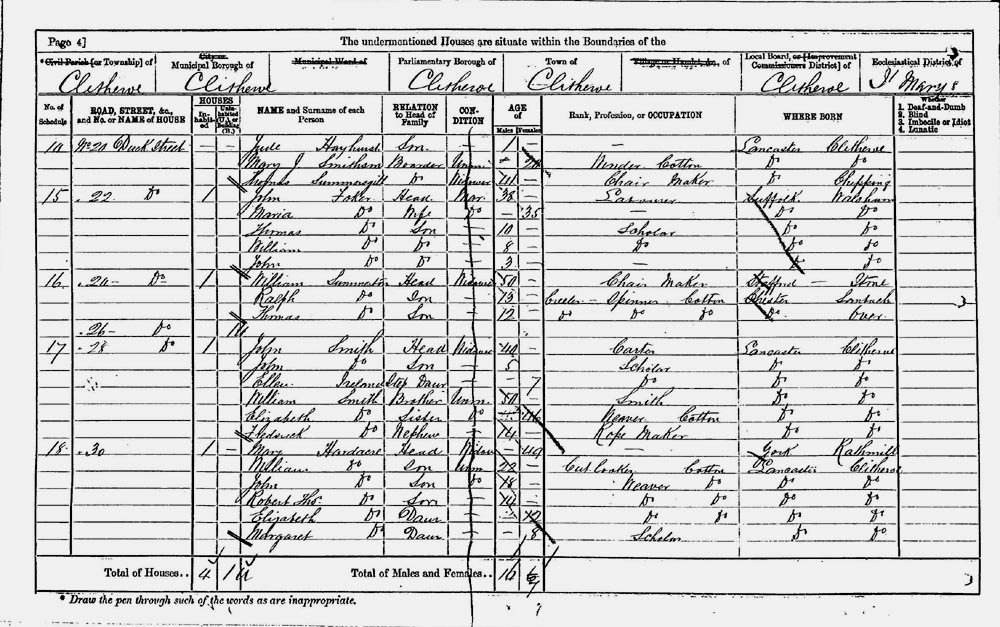 Page 4]
The undermentioned Houses are situate within the Boundaries of the
*Civil Parish [or Township] of
Clitheroe
City or
Municipal Borough of
Clitheroe
Municipal Ward of
Parliamentary Borough of
Clitheroe
Town of
Clitheroe
Village or Hamlet, &c., of
Local Board, or [Improvement
Commissioners District] of
Clitheroe
Ecclesiastical District of
St Marys
No. of Schedule
ROAD, STREET, &c., and No. or NAME of HOUSE
HOUSES
Inhabited
Uninhabited (U.), or Building (B.)
NAME and Surname of each Person
RELATION to Head of Family
CONDITION
AGE of
Males
Females
Rank, Profession, or OCCUPATION
WHERE BORN
Whether
1. Deaf-and-Dumb
2. Blind
3. Imbecile or Idiot
4. Lunatic
No 20 Duck Street — — Jude Hayhurst Son — 1 — — Lancaster Clitheroe
Mary J Smitham Boarder Unm. Winder Cotton Do Do
Thomas Summersgill Do Widower 41 — Chair Maker Do Chipping
15 22 Do 1 John Foker Head Mar. 38 — Labourer Suffolk Walsham
Maria Do Wife Do — 35 — Do Do
Thomas Do Son — 10 — Scholar Do Do
William Do Do — 8 — Do Do Do
John Do Do — 3 — — Do Do
16 24 Do 1 William Summerton Head Widower 50 — Chair Maker Stafford Stone
Ralph Do Son — 15 — Spinner Cotton Chester Sanbach
Thomas Do Son — 12 — Do Do Do Do Over
26 Do 1U
17 28 Do 1 John Smith Head Widower 40 — Carter Lancaster Clitheroe
John Do Son — 5 — Scholar Do Do
Ellen Ireland Step Daur — — 7 Do Do Do
William Smith Brother Unm. 50 — Smith Do Do
Elizabeth Do Sister Do Weaver Cotton Do Do
Do Nephew — 14 — Rope Maker Do Do
18 30 1 — Mary Hardacre Head Widow — 49 — York Rathmill
William Do Son Unm 22 — Cut Looker Cotton Lancaster Clitheroe
John Do Son Do 18 — Weaver Do Do Do
Robert Ths. Do Son — 14 — Do Do Do Do
Elizabeth Do Daur — 12 Do Do Do Do
Margaret Do Daur — 8 Scholar Do Do
Total of Houses.. 4 1U
Total of Males and Females.. 16 7
* Draw the pen through such of the words as are inappropriate.